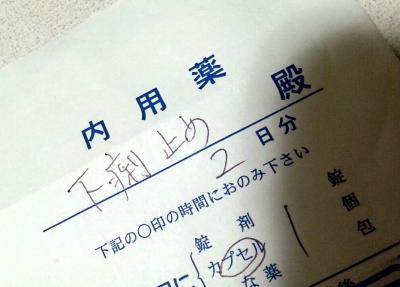 内用薬
殿
下痢止め
2日分
下記の〇印の時間におのみ下さい
に 錠剤 カプセル な薬 1 錠個包